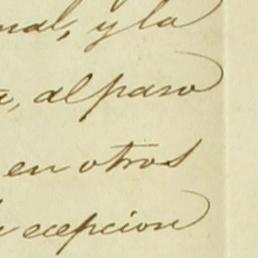 nal, y la
a, al paso
en otros
ecepcion